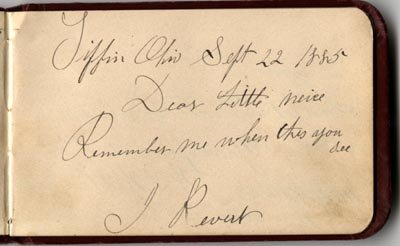 Tiffin Ohio Sept 22 1885
Dear Little neice
Remember me when this you
see
J Revert